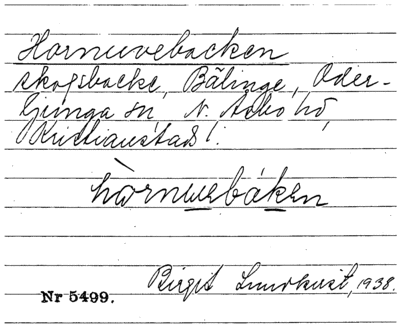 Hornuvebacken
skogsbacke, Bälinge, Oder-
ljunga sn, N. Åsbo hd,
Kristianstads l.
hòrnuvebáken
Birgit Lundkvist, 1938.
Nr 5499.